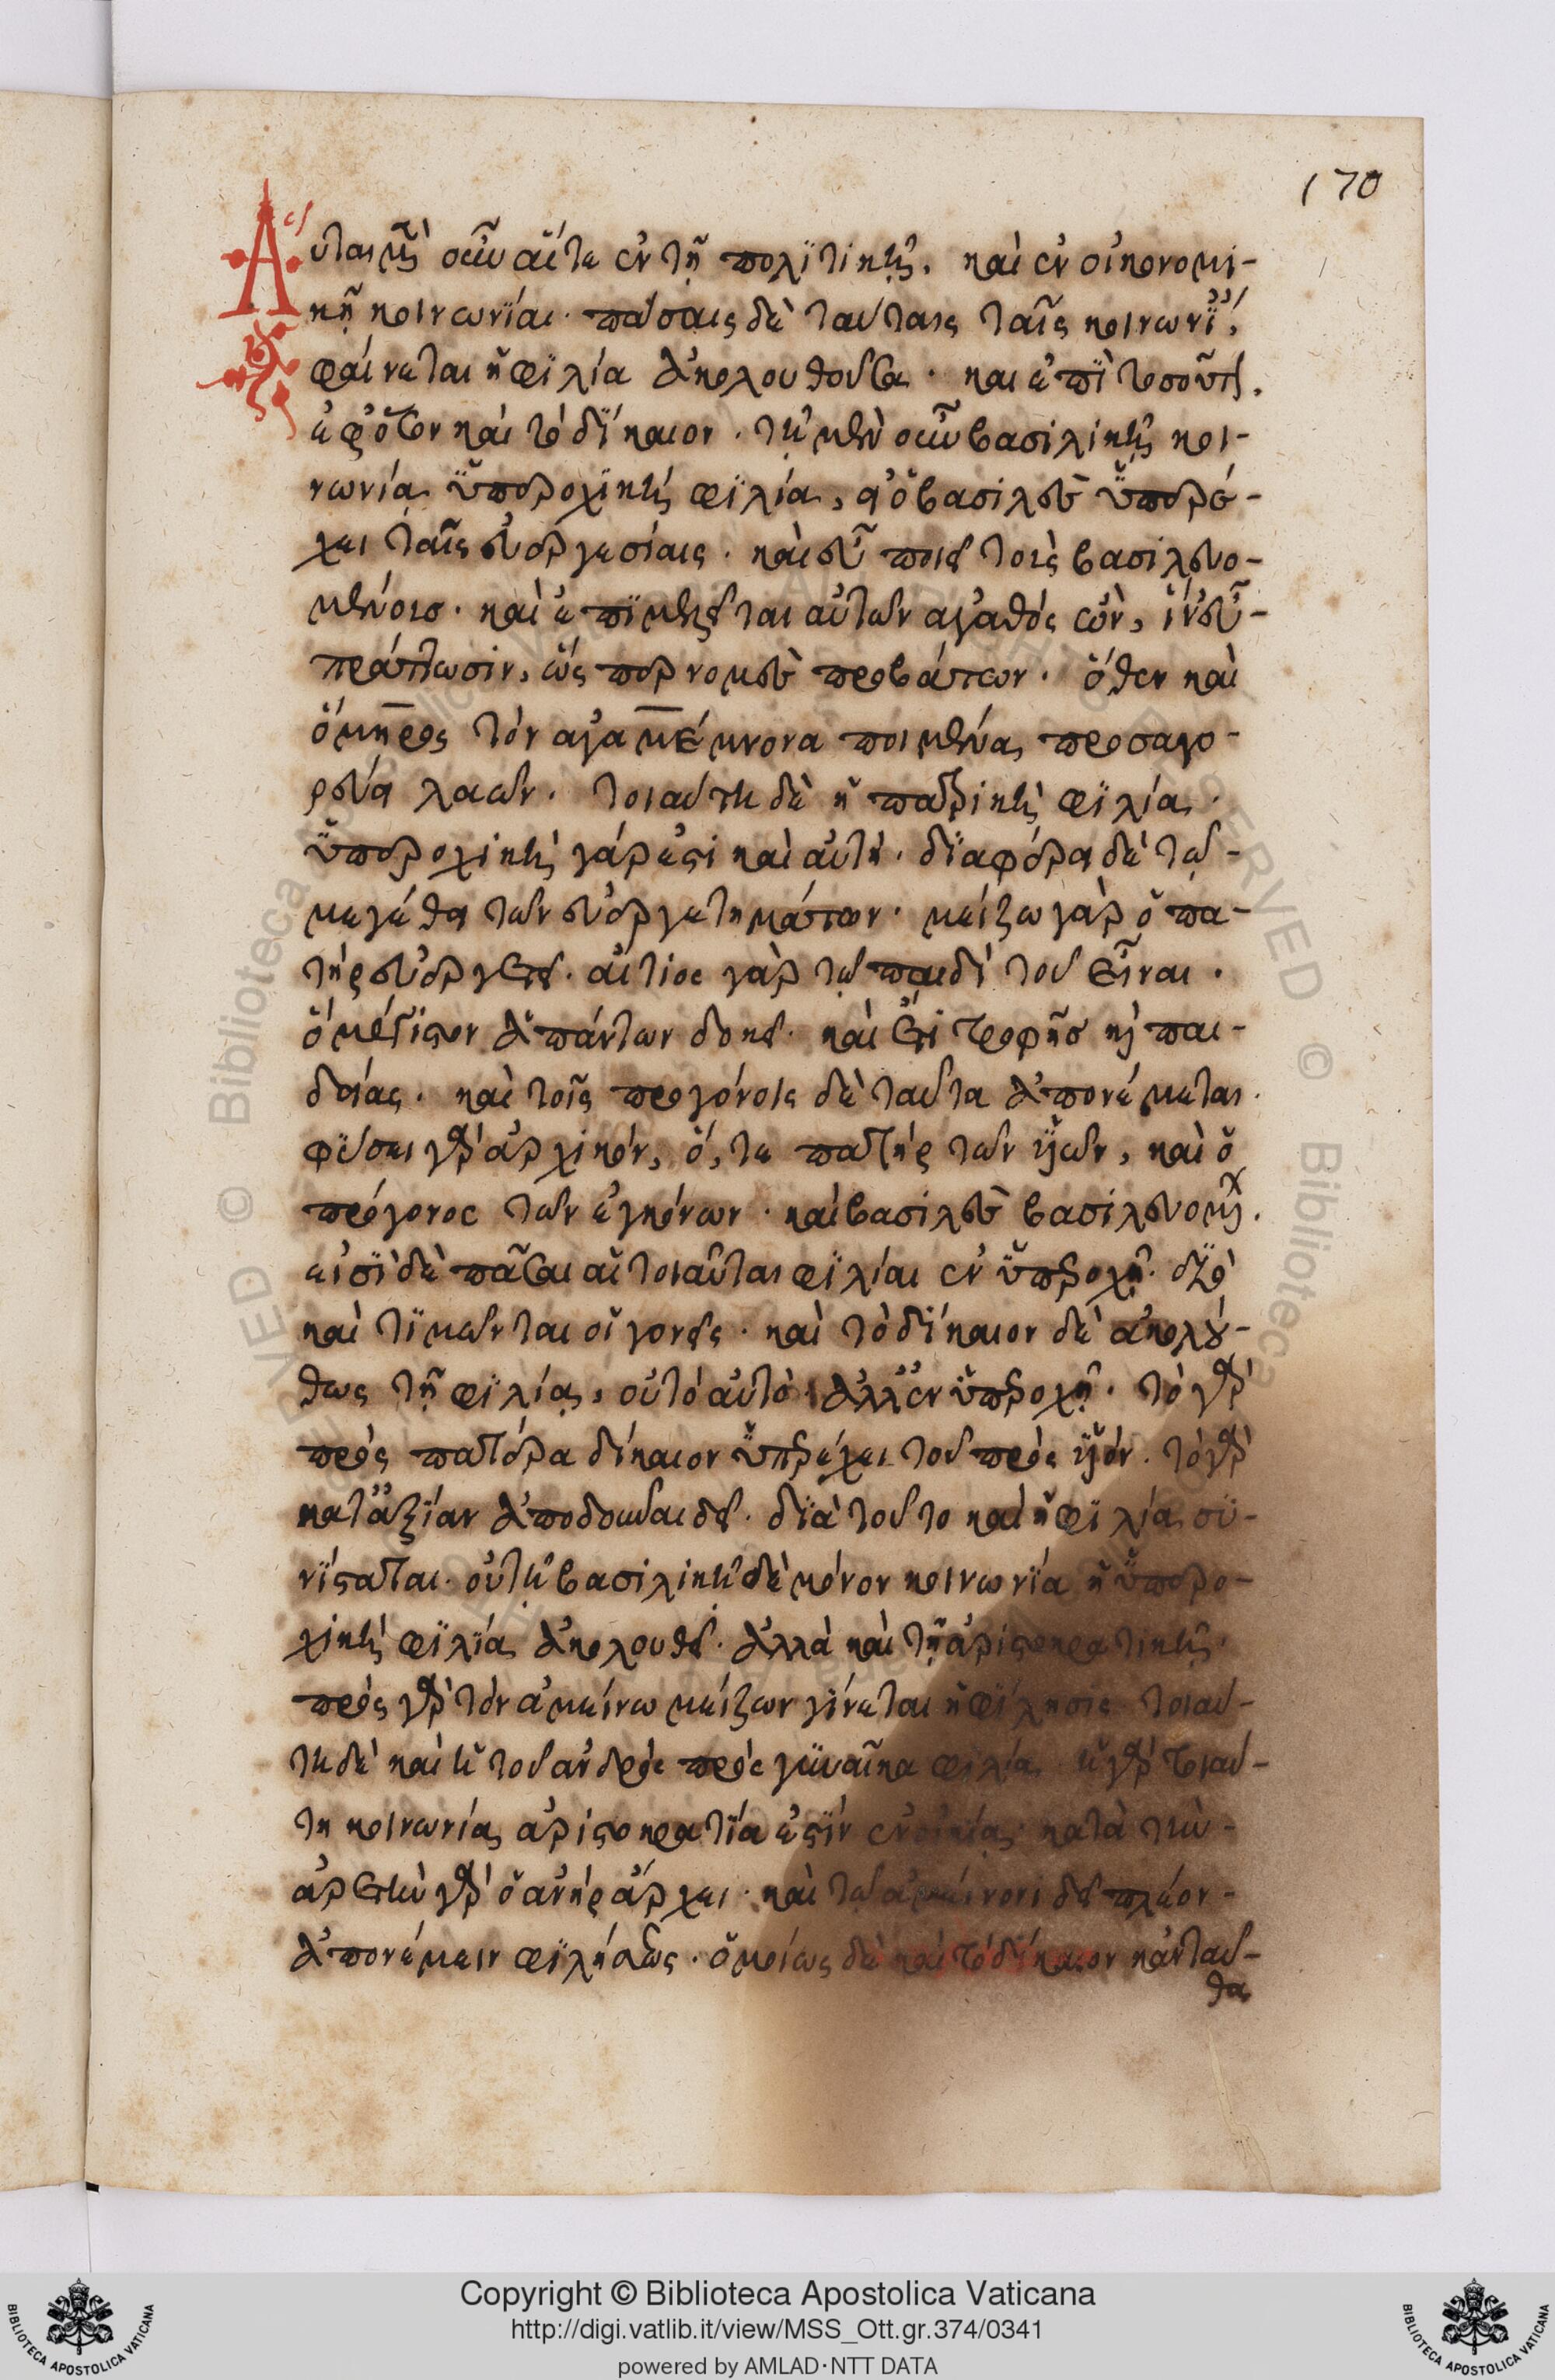 170
Αὗται μὲν οὖν αἵ τε ἐν τῇ πολιτικῇ, καὶ ἐν οἰκονομι-
κῇ κοινωνίαι. πάσαις δὲ ταύταις ταῖς κοινωνί,
φαίνεται ἡ φιλία ἀκολουθοῦσα. καὶ ἐπὶ τοσοῦτ.
ἐφ' ὅσον καὶ τὸ δίκαιον. τῇ μὲν οὖν βασιλικῇ κοι-
νωνία ὑπεροχικὴ φιλία, ὁ βασιλεὺς ὑπερέ-
χει ταῖς εὐεργεσίαις. καὶ εὖ ποιεῖ τοὶς βασιλευο-
μένοισ. καὶ ἐπιμελεῖται αὐτῶν ἀγαθός ὢν, ἵν' εὖ
πράττωσιν, ὥσπερ νομεὺς προβάτων. ὅθεν καὶ
ὅμηρος τὸν ἀγαμέμνονα ποιμένα προσαγο-
ρεύει λαῶν. τοιαύτη δὲ ἡ πατρικὴ φιλία.
ὑπεροχικὴ γάρ ἐστι καὶ αὐτή. διαφέρει δὲ τῷ
μεγέθει τῶν εὐεργετημάτων. μείζω γὰρ ὁ πα-
τήρ εὐεργετεῖ. αἴτιος γὰρ τῷ παιδὶ τοῦ εἶναι.
ὃ μέγιστον ἁπάντων δοκεῖ. καὶ ἔτι τροφῆσ καὶ παι-
δείας. καὶ τοῖς προγόνοις δὲ ταῦτα ἀπονέμεται.
φύσει γὰρ ἀρχικόν, ὅ, τε πατὴρ τῶν υἱῶν, καὶ ὁ
πρόγονος τῶν ἐγκόνων. καὶ βασιλεὺς βασιλευομ.
εἰσὶ δὲ πᾶσαι αἱ τοιαῦται φιλίαι ἐν ὑπεροχῇ. διὸ
καὶ τιμῶνται οἱ γονεῖς. καὶ τὸ δίκαιον δὲ ἀκολού-
θως τῇ φιλίᾳ, οὐ τὸ αὐτὸ ἀλλ' ἐν ὑπεροχῇ. τὸ γὰρ
πρὸς πατέρα δίκαιον ὑπερέχει τοῦ πρὸς υἱόν. τὸ γὰρ
κατ' ἀξίαν ἀποδοῦναι δεῖ. διὰ τοῦτο καὶ ἡ φιλία συ-
νίσταται. οὐ τῇ βασιλικῇ δὲ μόνον κοινωνία ἡ ὑπερο-
χικὴ φιλία ἀκολουθεῖ. ἀλλὰ καὶ τῇ ἀριστοκρατικῇ.
πρὸς γὰρ τὸν ἀμείνω μείζων γίνεται ἡ φίλησις τοιαύ-
τη δὲ καὶ ἡ τοῦ ἀνδρὸς πρὸς γυναῖκα φιλία ἡ γὰρ τοιαύ-
τη κοινωνία ἀριστοκρατία ἐστὶν ἐν οἰκίᾳ. κατὰ τὴν
ἀρετὴν γὰρ ὁ ἀνὴρ ἄρχει. καὶ τῷ ἀμείνονι δεῖ πλέον
ἀπονέμειν φιλήσεως. ὁμοίως δὲ καὶ τὸ δίκαιον κἀνταῦ-
θα
Copyright © Biblioteca Apostolica Vaticana
http://digi.vatlib.it/view/MSS_Ott.gr.374/0341
powered by AMLAD·NTT DATA
BIBLIOTECA APOSTOLICA VATICANA
BIBLIOTECA APOSTOLICA VATICANA